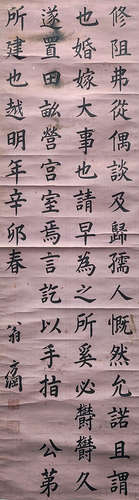 修阻弗從偶談及歸孺人慨然允諾且謂
也婚嫁大事也請早為之所奚必鬱鬱久
遂置田畝營宮室焉言訖以手指 公第
所建也越明年辛卯春
翁方綱